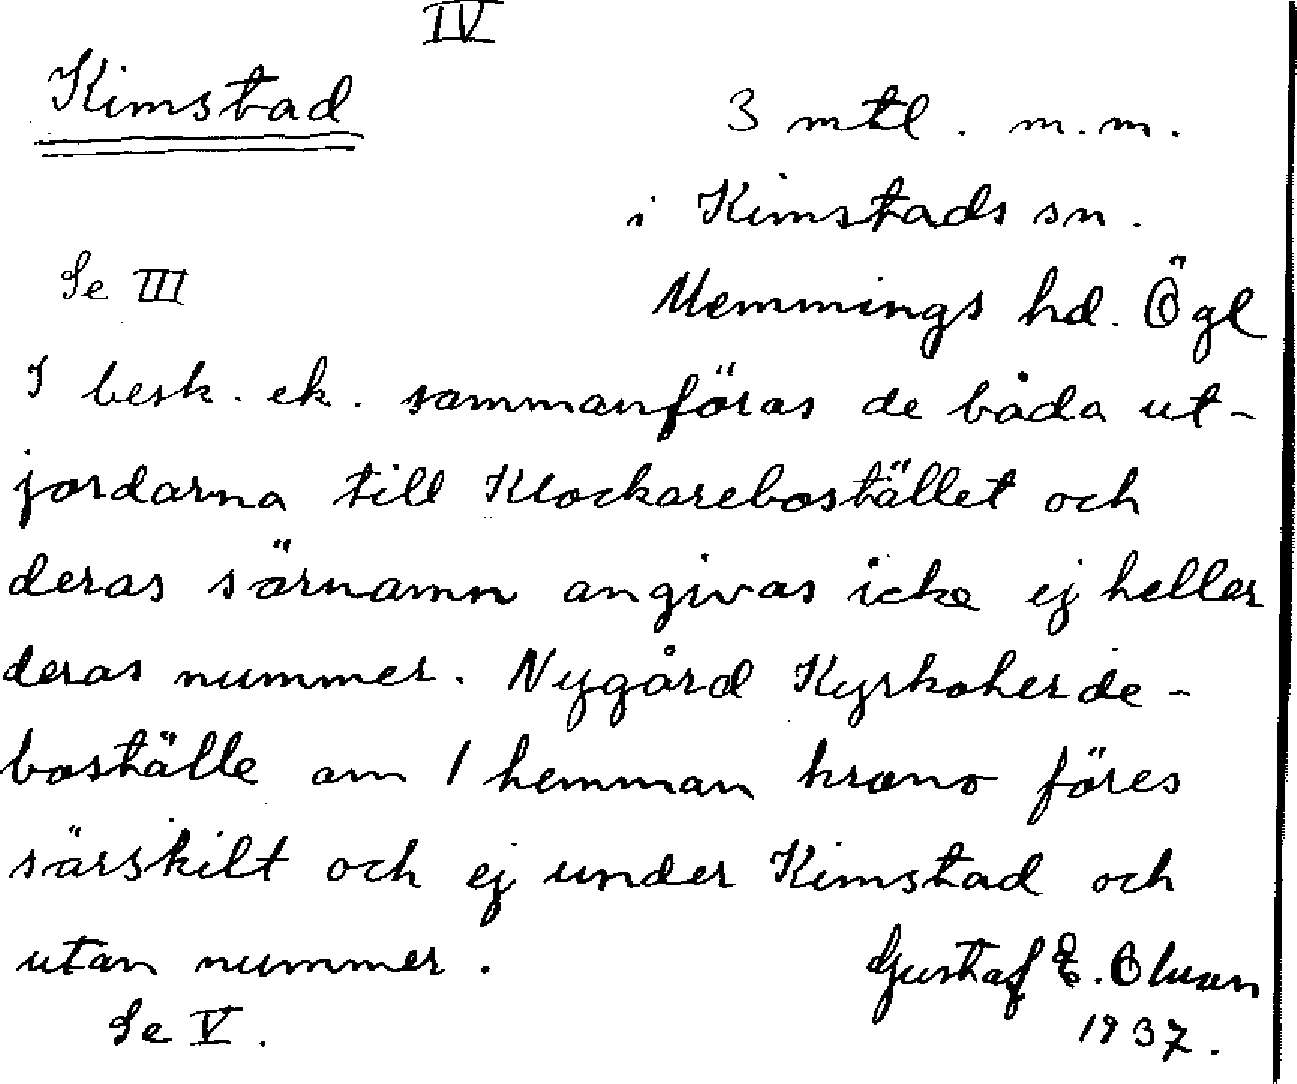 IV
Kimstad
3 mtl. m.m.
i Kimstads sn.
Se III
Memmings hd. Ögl
I besk. ek. sammanföras de båda ut-
jordarna till Klockarebostället och
deras särnamn angivas icke ej heller
deras nummer. Nygård Kyrkoherde-
boställe om 1 hemman krono föres
särskilt och ej under Kimstad och
utan nummer.
Gustaf E.
Se V.
1937.